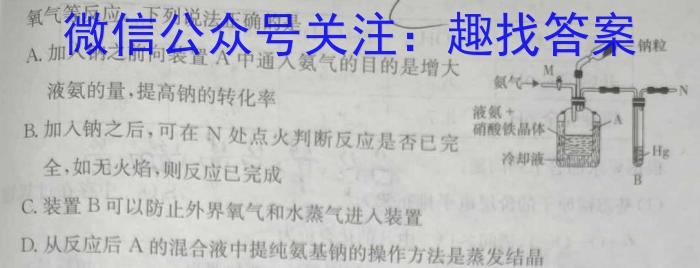 氧气等反应。下列说法正确的是
微信公众号关注：趣找答案
A.加入钠之前向装置 A 中通入氨气的目的是增大
液氨的量,提高钠的转化率
B.加入钠之后,可在 N 处点火判断反应是否已完
全,如无火焰,则反应已完成
C.装置 B 可以防止外界氧气和水蒸气进入装置
D.从反应后 A 的混合液中提纯氨基钠的操作方法是蒸发结晶
钠粒
氨气
M
N
液氨+
硝酸铁晶体
A
冷却液
Hg
B